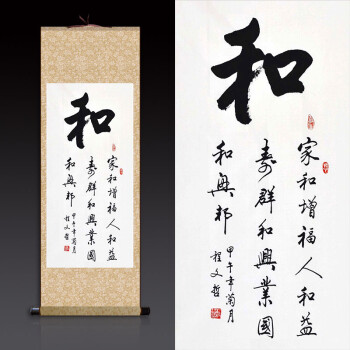 和
家和增福人和益
寿群和興業國
和興邦
甲午年菊月
程文哲
和
家和增福人和益
寿群和興業國
和興邦
甲午年菊月
程文哲